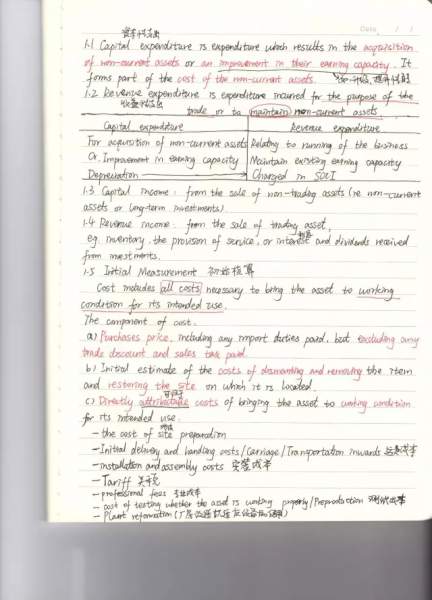 Date. / /
资本性支出
1.1 Capital expenditure is expenditure which results in the acquisition
of non-current assets or an improvement in their earning capacity. It
forms part of the cost of the non-current assets.
1.2 Revenue expenditure is expenditure incurred for the purpose of the
收益性支出
trade or to maintain non-current assets
Capital expenditure Revenue expenditure
For acquisition of non-current assets Relating to running of the business
Or. Improvement in earning capacity Maintain existing earning capacity
Depreciation → Charged in SOCI
1.3. Capital Income: from the sale of non-trading assets (ie. non-current
assets or long-term investments).
1.4 Revenue income: from the sale of trading asset,
eg. inventory, the provision of service, or interest and dividends received
from investments.
1.5 Initial Measurement 初始核算
Cost includes all costs necessary to bring the asset to working
condition for its intended use.
The component of cost.
a) Purchases price, including any import duties paid, but excluding any
trade discount and sales tax paid.
b) Initial estimate of the costs of dismanting and removing the item
and restoring the site on which it is located.
c) Directly attributable costs of bringing the asset to working condition
for its intended use:
- the cost of site preparation
- Initial delivery and handling costs/Carriage/Transportation inwards 运输成本
- installation and assembly costs 安装成本
- Tariff 关税
- professional fees 专业成本
- cost of testing whether the asset is working properly/Preproduction 测试成本
- Plant reformation